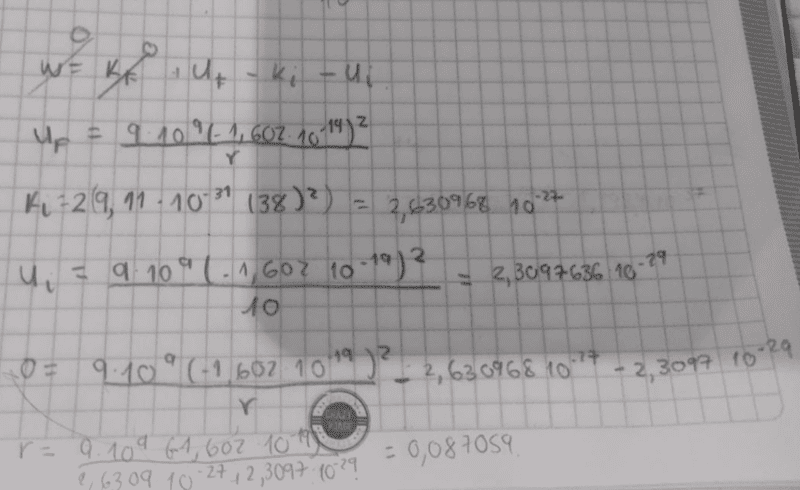 W = Kf + Uf - Ki - Ui
0 0
UF = 9·10⁹(-1,602·10⁻¹⁹)² / r
Ki = 2(9,11·10⁻³¹(38)²) = 2,630968 10⁻²⁷
Ui = 9·10⁹(-1,602 10⁻¹⁹)² / 10 = 2,3097636 10⁻²⁹
0 = 9·10⁹(-1,602 10⁻¹⁹)² / r - 2,630968 10⁻²⁷ - 2,3097 10⁻²⁹
r = 9·10⁹(-1,602 10⁻¹⁹) / 2,6309 10⁻²⁷ + 2,3097·10⁻²⁹ = 0,087059